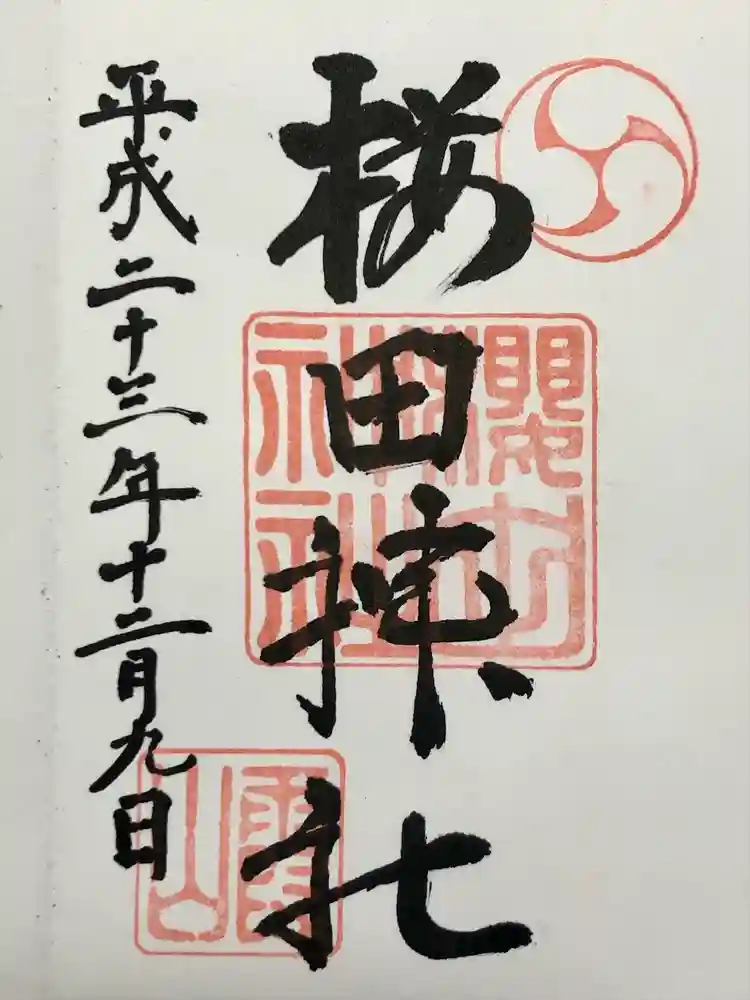 桜田神社
平成二十三年十二月九日
霞山